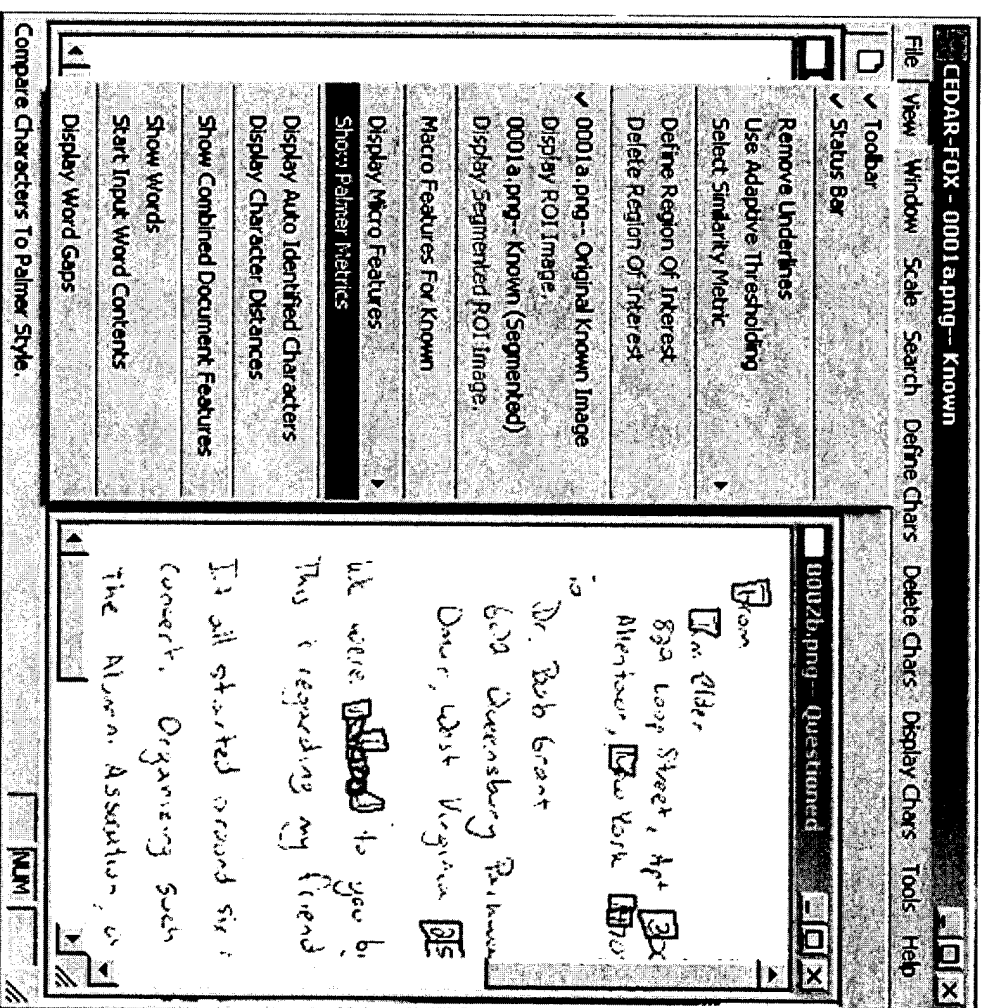 CEDAR-FOX - 0001a.png-- Known
File View Window Scale Search Define Chars Delete Chars Display Chars Tools Help
✓ Toolbar
✓ Status Bar
Remove Underlines
Use Adaptive Thresholding
Select Similarity Metric
Define Region Of Interest
Delete Region Of Interest
✓ 0001a.png-- Original Known Image
Display ROI Image.
0001a.png-- Known (Segmented)
Display Segmented ROI Image.
Macro Features For Known
Display Micro Features
Show Palmer Metrics
Display Auto Identified Characters
Display Character Distances
Show Combined Document Features
Show Words
Start Input Word Contents
Display Word Gaps
Compare Characters To Palmer Style.
NUM
0002b.png-- Questioned
From
Jim Elder
829 Loop Street, Apt
Allentown, New York
To
Dr. Bob Grant
602 Queensbury
Omar, West Virginia 25
We were to you b
This is regarding my friend
It all started around six
concert. Organizing such
The Alumni Association,